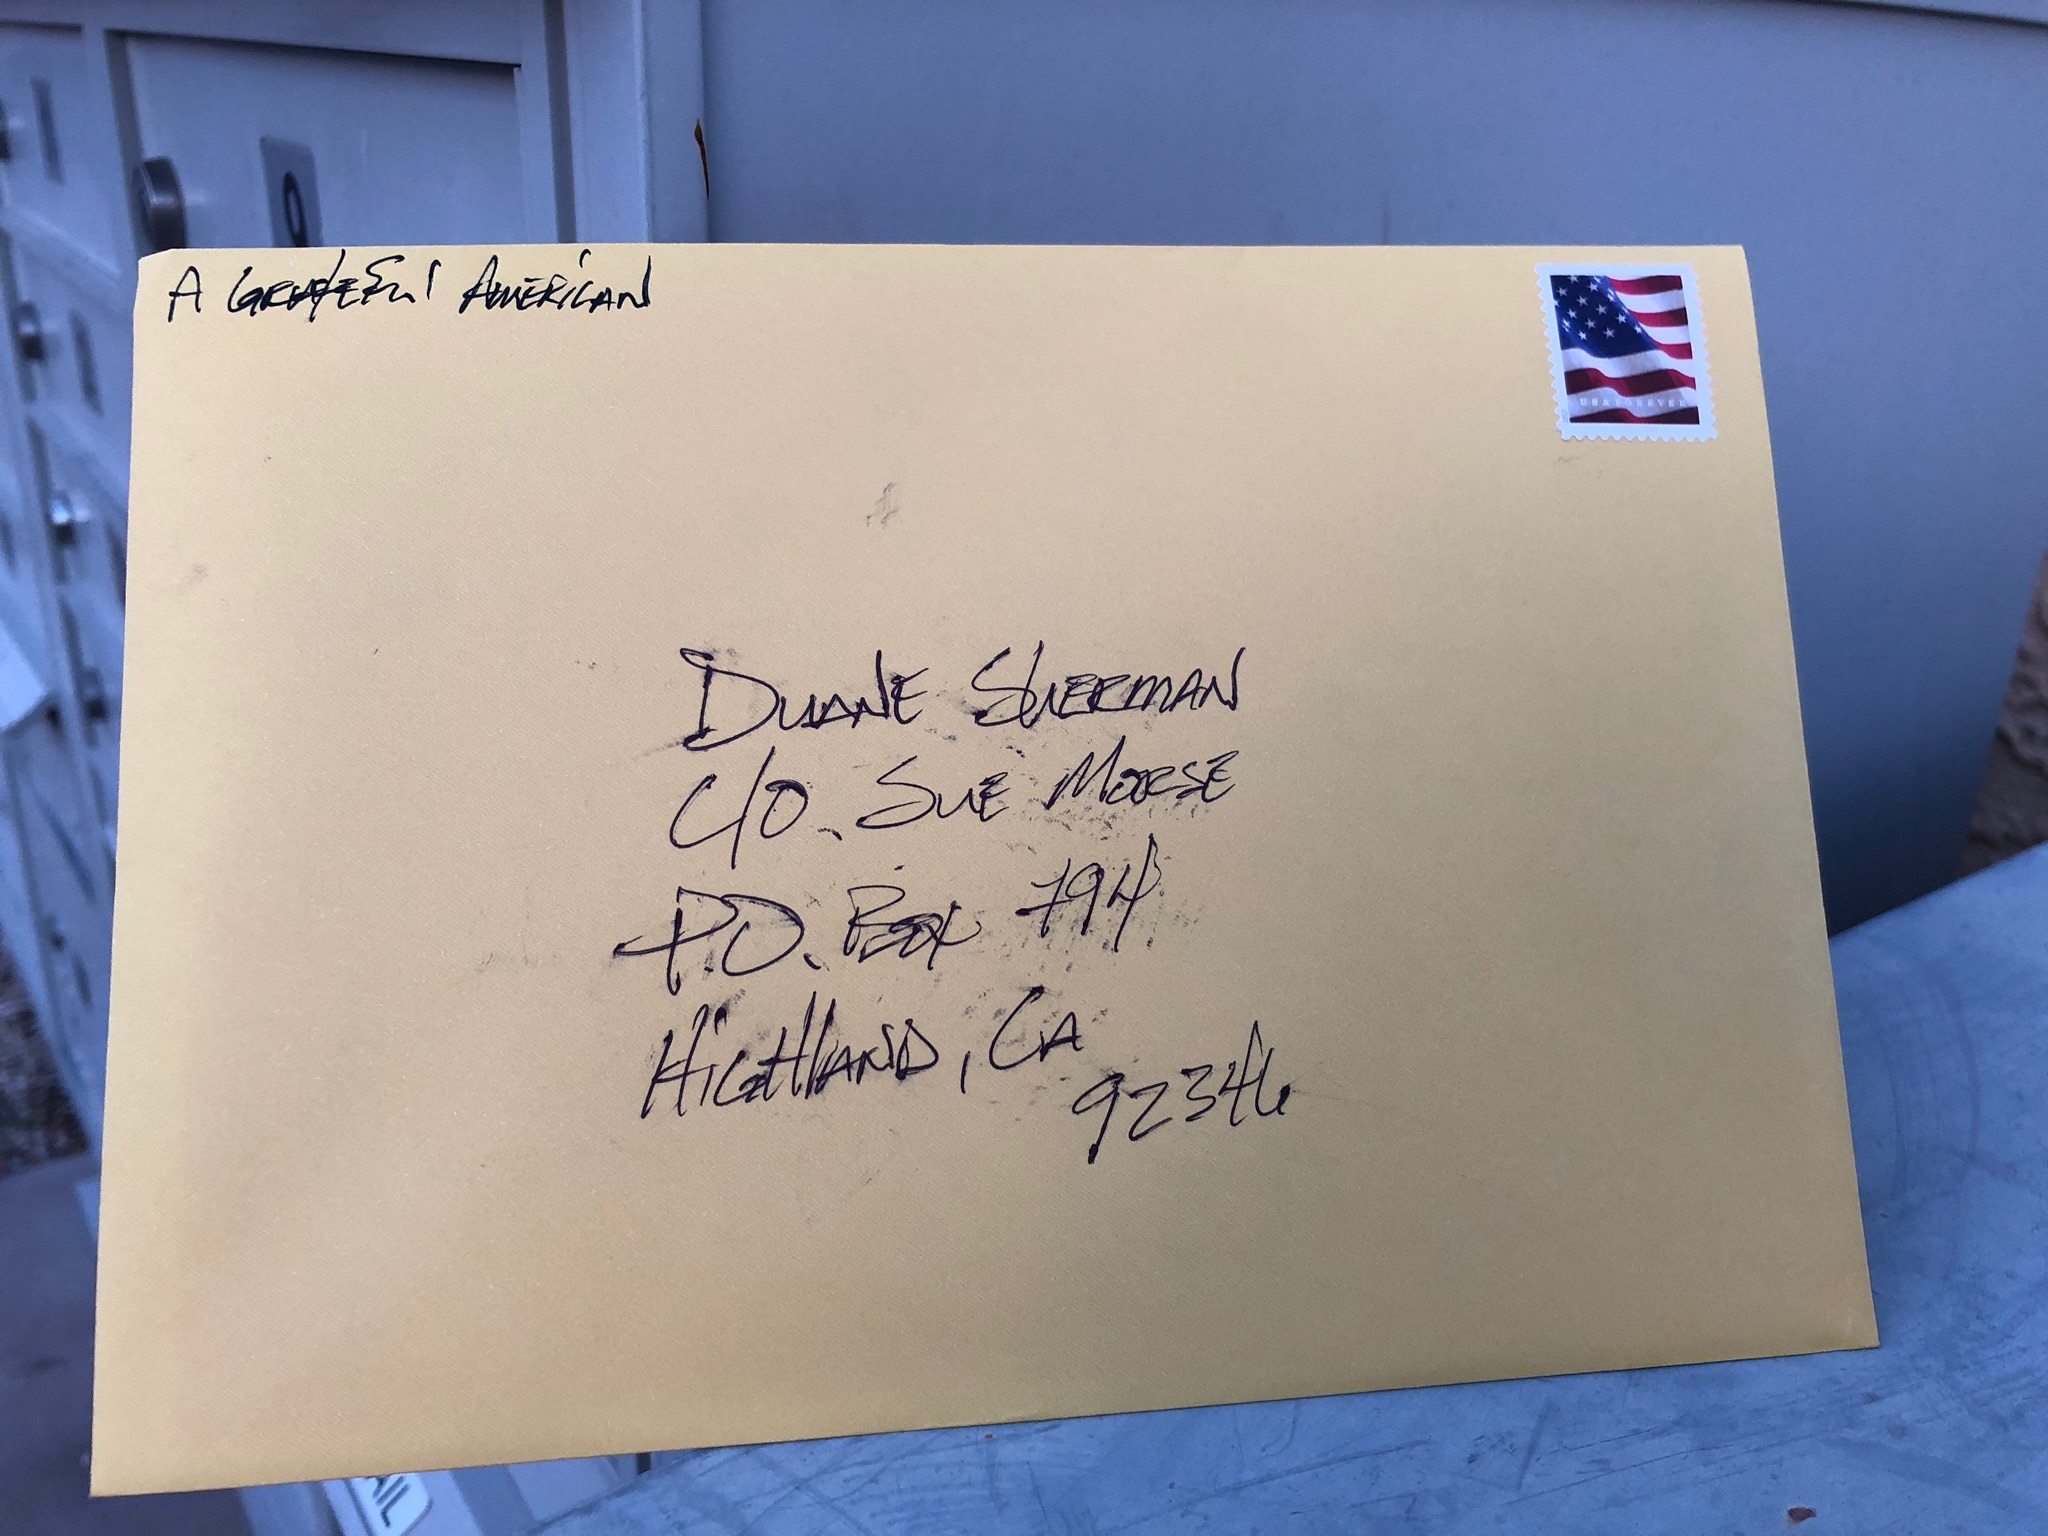 Q
A GRATEFUL AMERICAN
USA FOREVER
DUANE SHERMAN
C/O. SUE MORSE
P.O. BOX 794
HIGHLAND, CA
92346